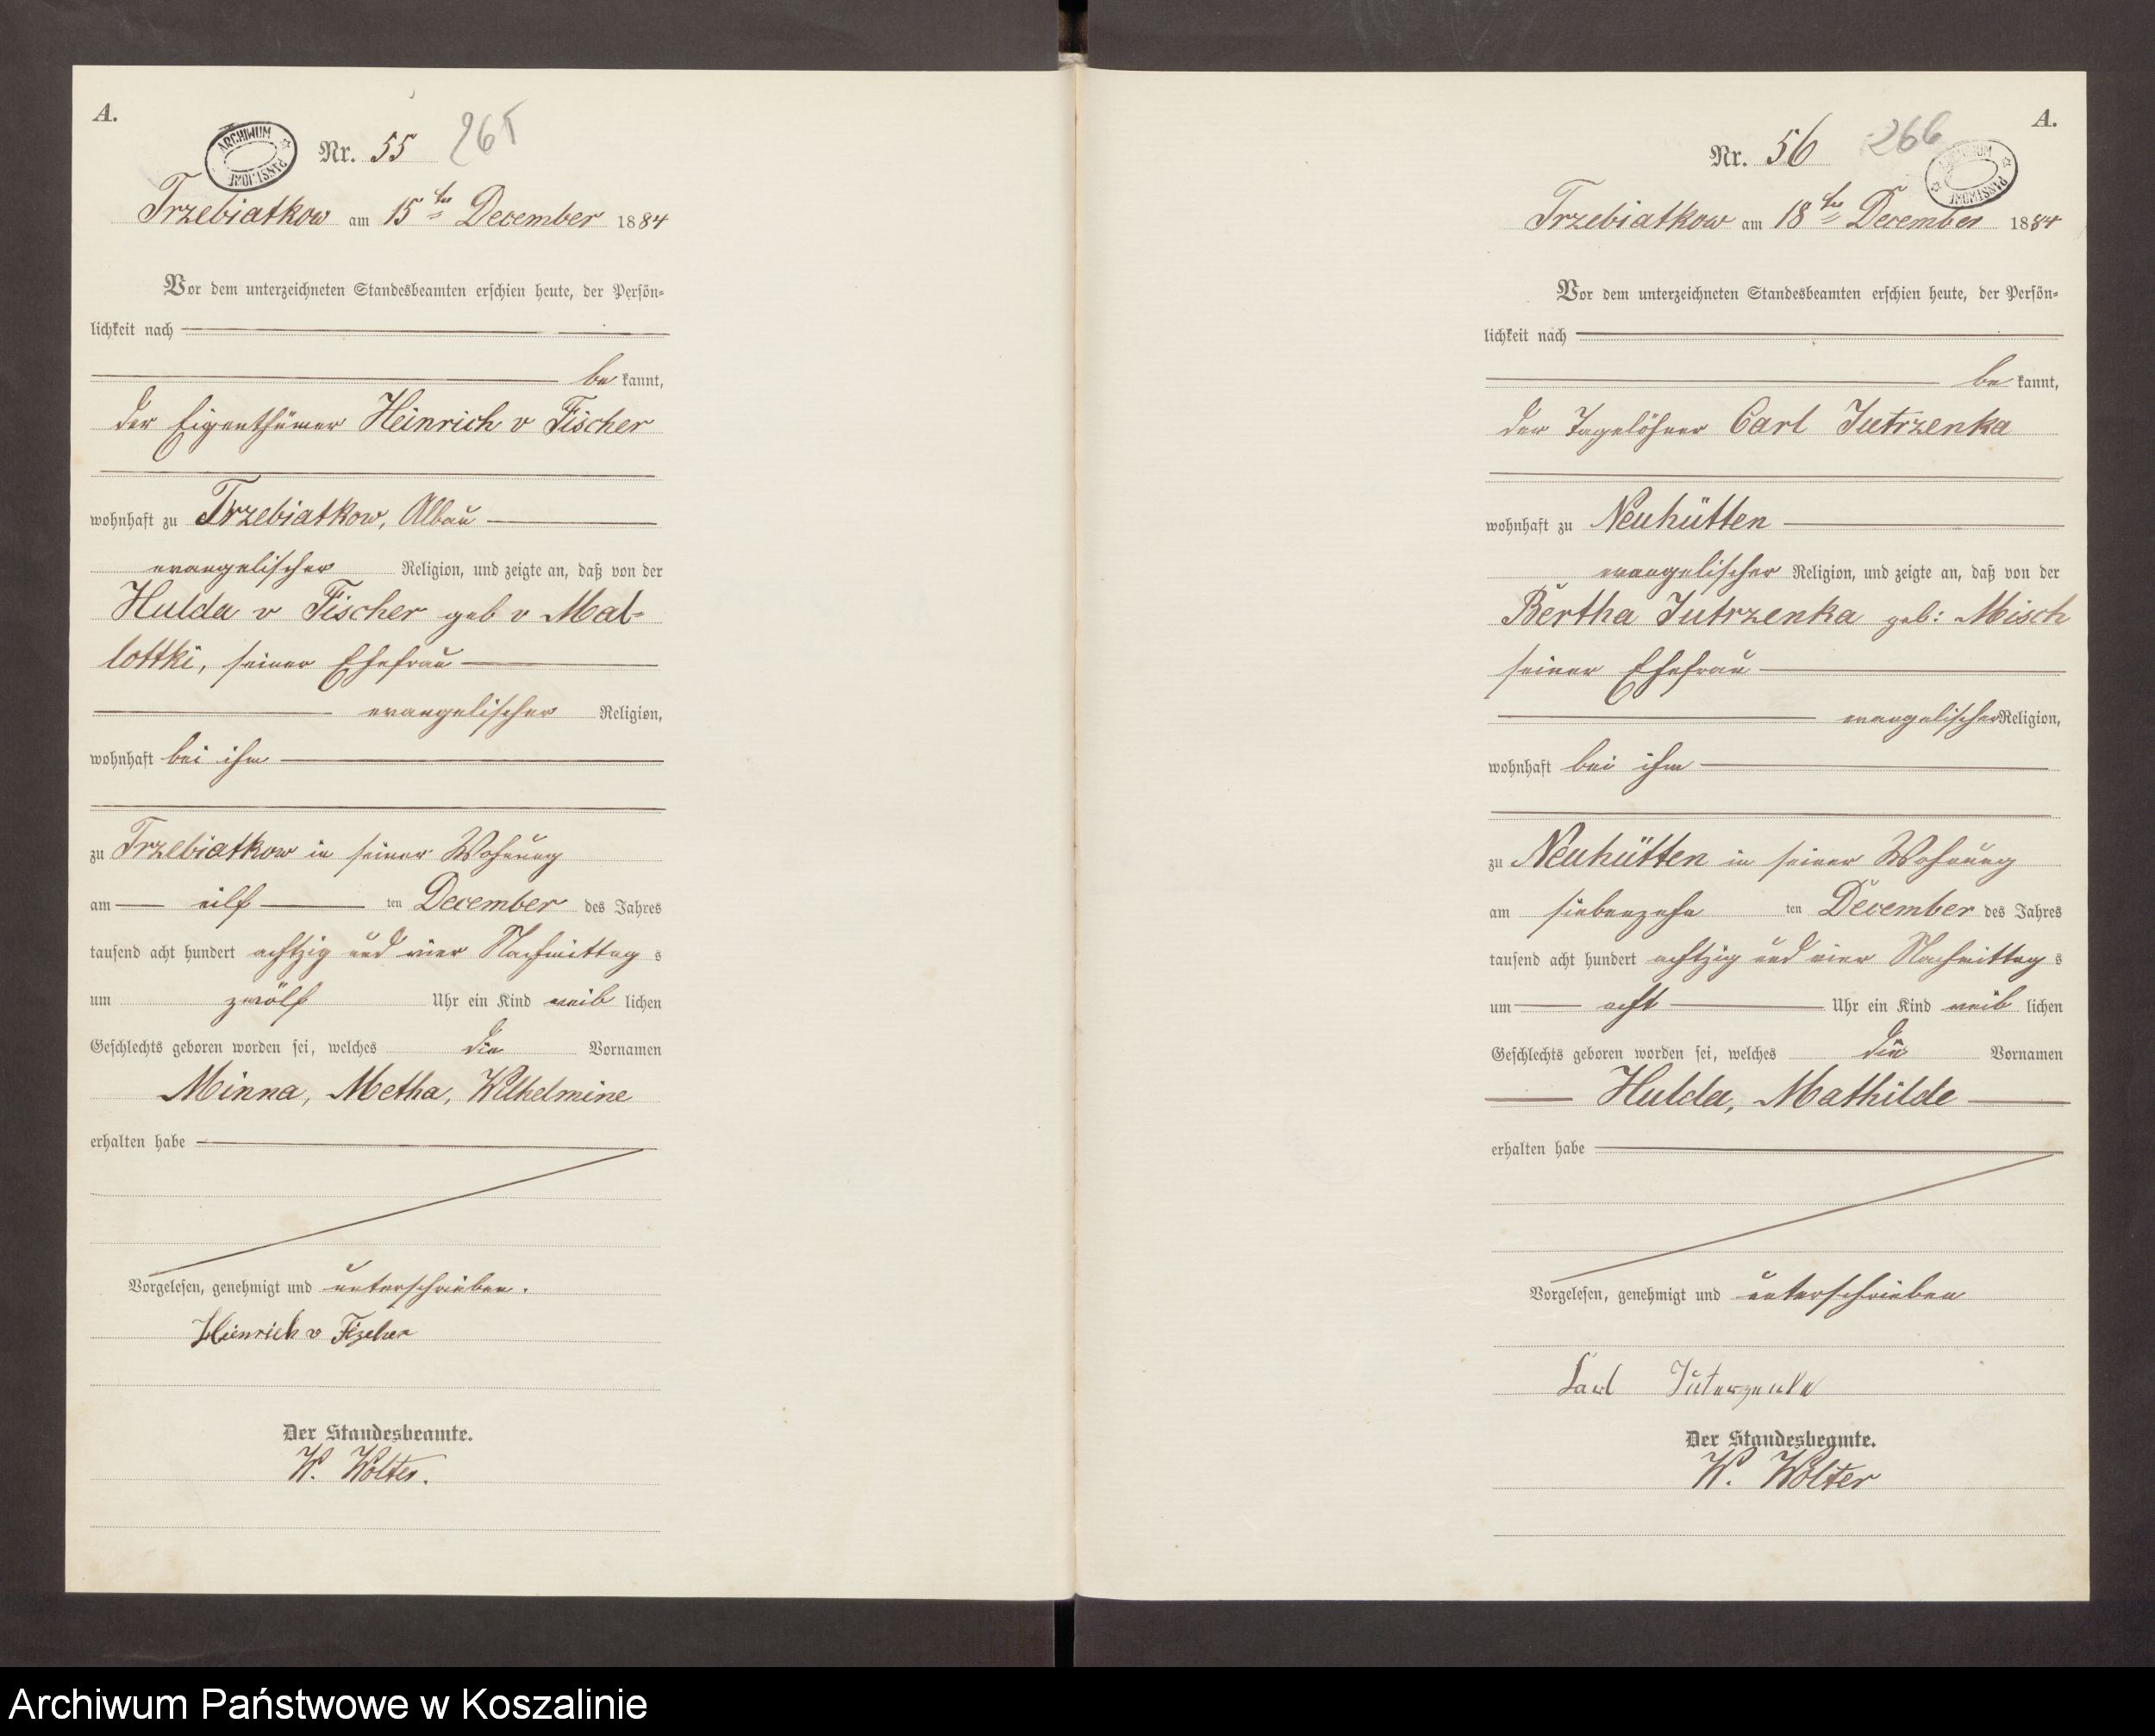 A.
ARCHIWUM PAŃSTWOWE
Nr. 55 265
Trzebiatkow am 15ten December 1884
Vor dem unterzeichneten Standesbeamten erschien heute, der Persön-
lichkeit nach
be kannt,
der Eigenthümer Heinrich v Fischer
wohnhaft zu Trzebiatkow, Abbau
evangelischer Religion, und zeigte an, daß von der
Hulda v Fischer geb v Mal-
lottki, seiner Ehefrau
evangelischer Religion,
wohnhaft bei ihm
zu Trzebiatkow in seiner Wohnung
am eilf ten December des Jahres
tausend acht hundert achtzig und vier Nachmittag s
um zwölf Uhr ein Kind weib lichen
Geschlechts geboren worden sei, welches die Vornamen
Minna, Metha, Wilhelmine
erhalten habe
Vorgelesen, genehmigt und unterschrieben.
Heinrich v Fischer
Der Standesbeamte.
W. Wolter.
A.
Nr. 56 266
Trzebiatkow am 18ten December 1884
Vor dem unterzeichneten Standesbeamten erschien heute, der Persön-
lichkeit nach
be kannt,
der Tagelöhner Carl Jutrzenka
wohnhaft zu Neuhütten
evangelischer Religion, und zeigte an, daß von der
Bertha Jutrzenka geb: Misch
seiner Ehefrau
evangelischer Religion,
wohnhaft bei ihm
zu Neuhütten in seiner Wohnung
am siebenzehn ten December des Jahres
tausend acht hundert achtzig und vier Nachmittag s
um acht Uhr ein Kind weib lichen
Geschlechts geboren worden sei, welches die Vornamen
Hulda, Mathilde
erhalten habe
Vorgelesen, genehmigt und unterschrieben
Carl
Der Standesbeamte.
W. Wolter
Archiwum Państwowe w Koszalinie